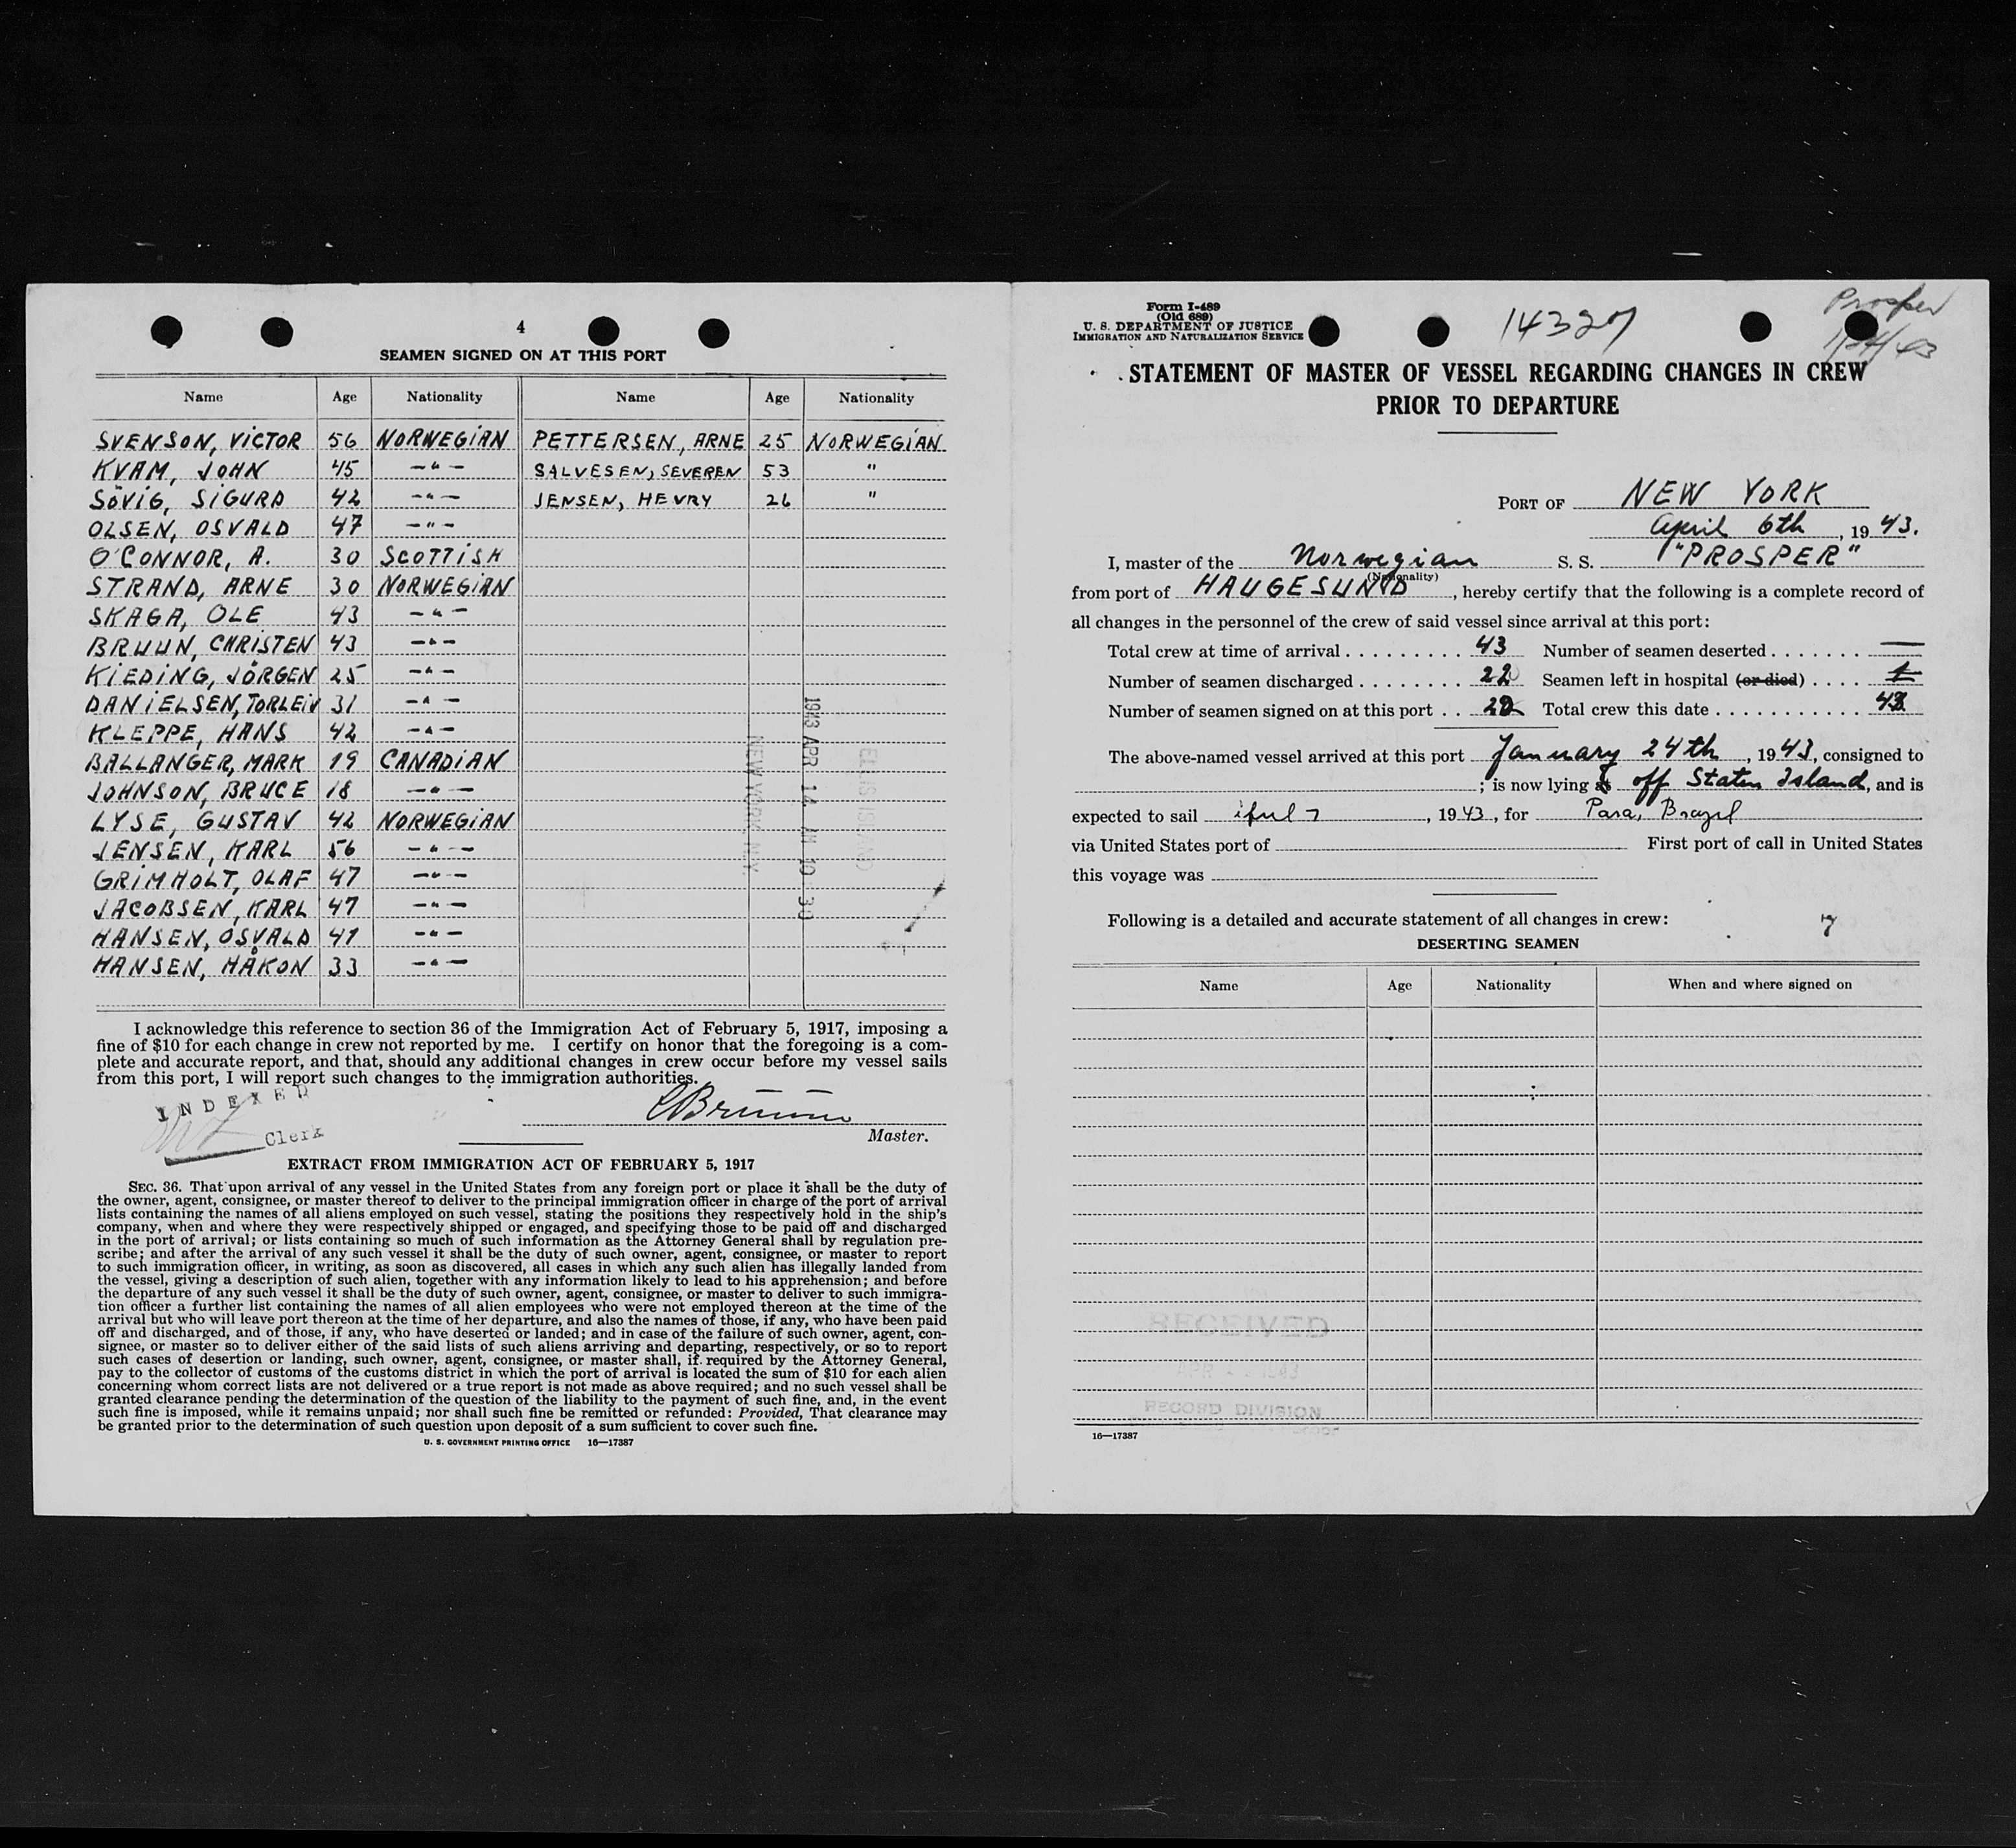 4
SEAMEN SIGNED ON AT THIS PORT
Name Age Nationality Name Age Nationality
SVENSON, VICTOR 56 NORWEGIAN PETTERSEN, ARNE 25 NORWEGIAN
KVAM, JOHN 45 —"— SALVESEN, SEVEREN 53 "
SÖVIG, SIGURD 42 —"— JENSEN, HEVRY 26 "
OLSEN, OSVALD 47 —"—
O'CONNOR, A. 30 SCOTTISH
STRAND, ARNE 30 NORWEGIAN
SKAGA, OLE 43 —"—
BRUUN, CHRISTEN 43 —"—
KIEDING, JÖRGEN 25 —"—
DANIELSEN, TORLEIV 31 —"—
KLEPPE, HANS 42 —"—
BALLANGER, MARK 19 CANADIAN
JOHNSON, BRUCE 18 —"—
LYSE, GUSTAV 42 NORWEGIAN
JENSEN, KARL 56 —"—
GRIMHOLT, OLAF 47 —"—
JACOBSEN, KARL 47 —"—
HANSEN, OSVALD 41 —"—
HANSEN, HÅKON 33 —"—
1943 APR 14 AM 10 39
ELLIS ISLAND
NEW YORK, N.Y.
I acknowledge this reference to section 36 of the Immigration Act of February 5, 1917, imposing a
fine of $10 for each change in crew not reported by me. I certify on honor that the foregoing is a com-
plete and accurate report, and that, should any additional changes in crew occur before my vessel sails
from this port, I will report such changes to the immigration authorities.
INDEXED
Clerk
Master.
EXTRACT FROM IMMIGRATION ACT OF FEBRUARY 5, 1917
SEC. 36. That upon arrival of any vessel in the United States from any foreign port or place it shall be the duty of
the owner, agent, consignee, or master thereof to deliver to the principal immigration officer in charge of the port of arrival
lists containing the names of all aliens employed on such vessel, stating the positions they respectively hold in the ship's
company, when and where they were respectively shipped or engaged, and specifying those to be paid off and discharged
in the port of arrival; or lists containing so much of such information as the Attorney General shall by regulation pre-
scribe; and after the arrival of any such vessel it shall be the duty of such owner, agent, consignee, or master to report
to such immigration officer, in writing, as soon as discovered, all cases in which any such alien has illegally landed from
the vessel, giving a description of such alien, together with any information likely to lead to his apprehension; and before
the departure of any such vessel it shall be the duty of such owner, agent, consignee, or master to deliver to such immigra-
tion officer a further list containing the names of all alien employees who were not employed thereon at the time of the
arrival but who will leave port thereon at the time of her departure, and also the names of those, if any, who have been paid
off and discharged, and of those, if any, who have deserted or landed; and in case of the failure of such owner, agent, con-
signee, or master so to deliver either of the said lists of such aliens arriving and departing, respectively, or so to report
such cases of desertion or landing, such owner, agent, consignee, or master shall, if required by the Attorney General,
pay to the collector of customs of the customs district in which the port of arrival is located the sum of $10 for each alien
concerning whom correct lists are not delivered or a true report is not made as above required; and no such vessel shall be
granted clearance pending the determination of the question of the liability to the payment of such fine, and, in the event
such fine is imposed, while it remains unpaid; nor shall such fine be remitted or refunded: Provided, That clearance may
be granted prior to the determination of such question upon deposit of a sum sufficient to cover such fine.
U. S. GOVERNMENT PRINTING OFFICE 16—17387
Form I-489
(Old 689)
U. S. DEPARTMENT OF JUSTICE
IMMIGRATION AND NATURALIZATION SERVICE
14327
Prosper
STATEMENT OF MASTER OF VESSEL REGARDING CHANGES IN CREW
PRIOR TO DEPARTURE
PORT OF NEW YORK
April 6th, 1943.
I, master of the Norwegian S. S. "PROSPER"
(Nationality)
from port of HAUGESUND, hereby certify that the following is a complete record of
all changes in the personnel of the crew of said vessel since arrival at this port:
Total crew at time of arrival . . . . . . . . . 43 Number of seamen deserted . . . . . . . —
Number of seamen discharged . . . . . . . . 22 Seamen left in hospital (or died) . . . . 1
Number of seamen signed on at this port . . 22 Total crew this date . . . . . . . . . . . 43
The above-named vessel arrived at this port January 24th, 1943, consigned to
; is now lying at off Staten Island, and is
expected to sail , 1943, for Para, Brazil
via United States port of First port of call in United States
this voyage was
Following is a detailed and accurate statement of all changes in crew:
7
DESERTING SEAMEN
Name Age Nationality When and where signed on
RECEIVED
RECORD DIVISION
16—17387